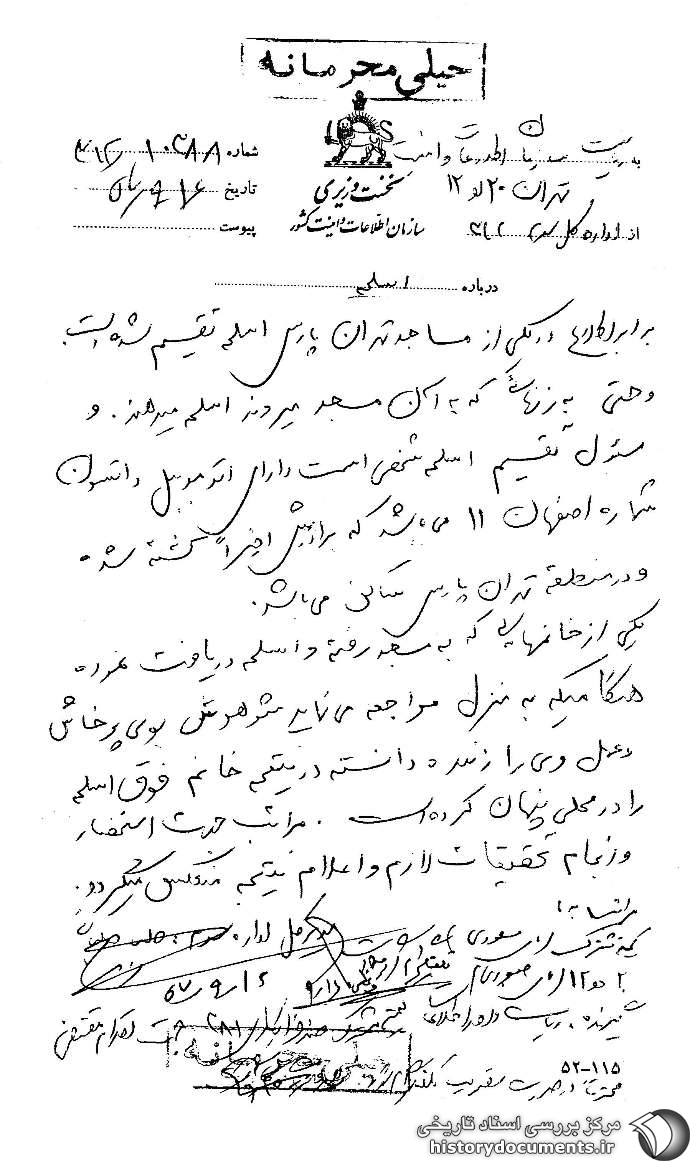 خیلی محرمانه
به ریاست سازمان اطلاعات و امنیت
تهران ۲۰ و ۱۲
از اداره کل سوم ۳۱۲
نخست وزیری
سازمان اطلاعات و امنیت کشور
شماره ۱۰۳۸۸ / ۳۱۲
تاریخ ۵۷/۹/۱۶
پیوست
درباره اسلحه
برابر اطلاع در یکی از مساجد تهران پارس اسلحه تقسیم شده است
و حتی به زنهائی که به آن مسجد میروند اسلحه میدهند. و
مسئول تقسیم اسلحه شخصی است دارای اتومبیل داتسون
شماره اصفهان ۱۱ می‌باشد که برادرش اخیراً کشته شده
و در منطقه تهران پارس ساکن می‌باشد.
یکی از خانمهایی که به مسجد رفته و اسلحه دریافت نموده
هنگامیکه به منزل مراجعه می‌نماید شوهرش بوی پرخاش
و عمل وی را زننده دانسته در نتیجه خانم فوق اسلحه
را در محلی پنهان کرده است. مراتب جهت استحضار
و انجام تحقیقات لازم و اعلام نتیجه منعکس میگردد.
مدیر کل اداره سوم
کمیته مشترک
۵۷/۹/۱۶
۵۲-۱۱۵
خیلی محرمانه
مرکز بررسی اسناد تاریخی
historydocuments.ir